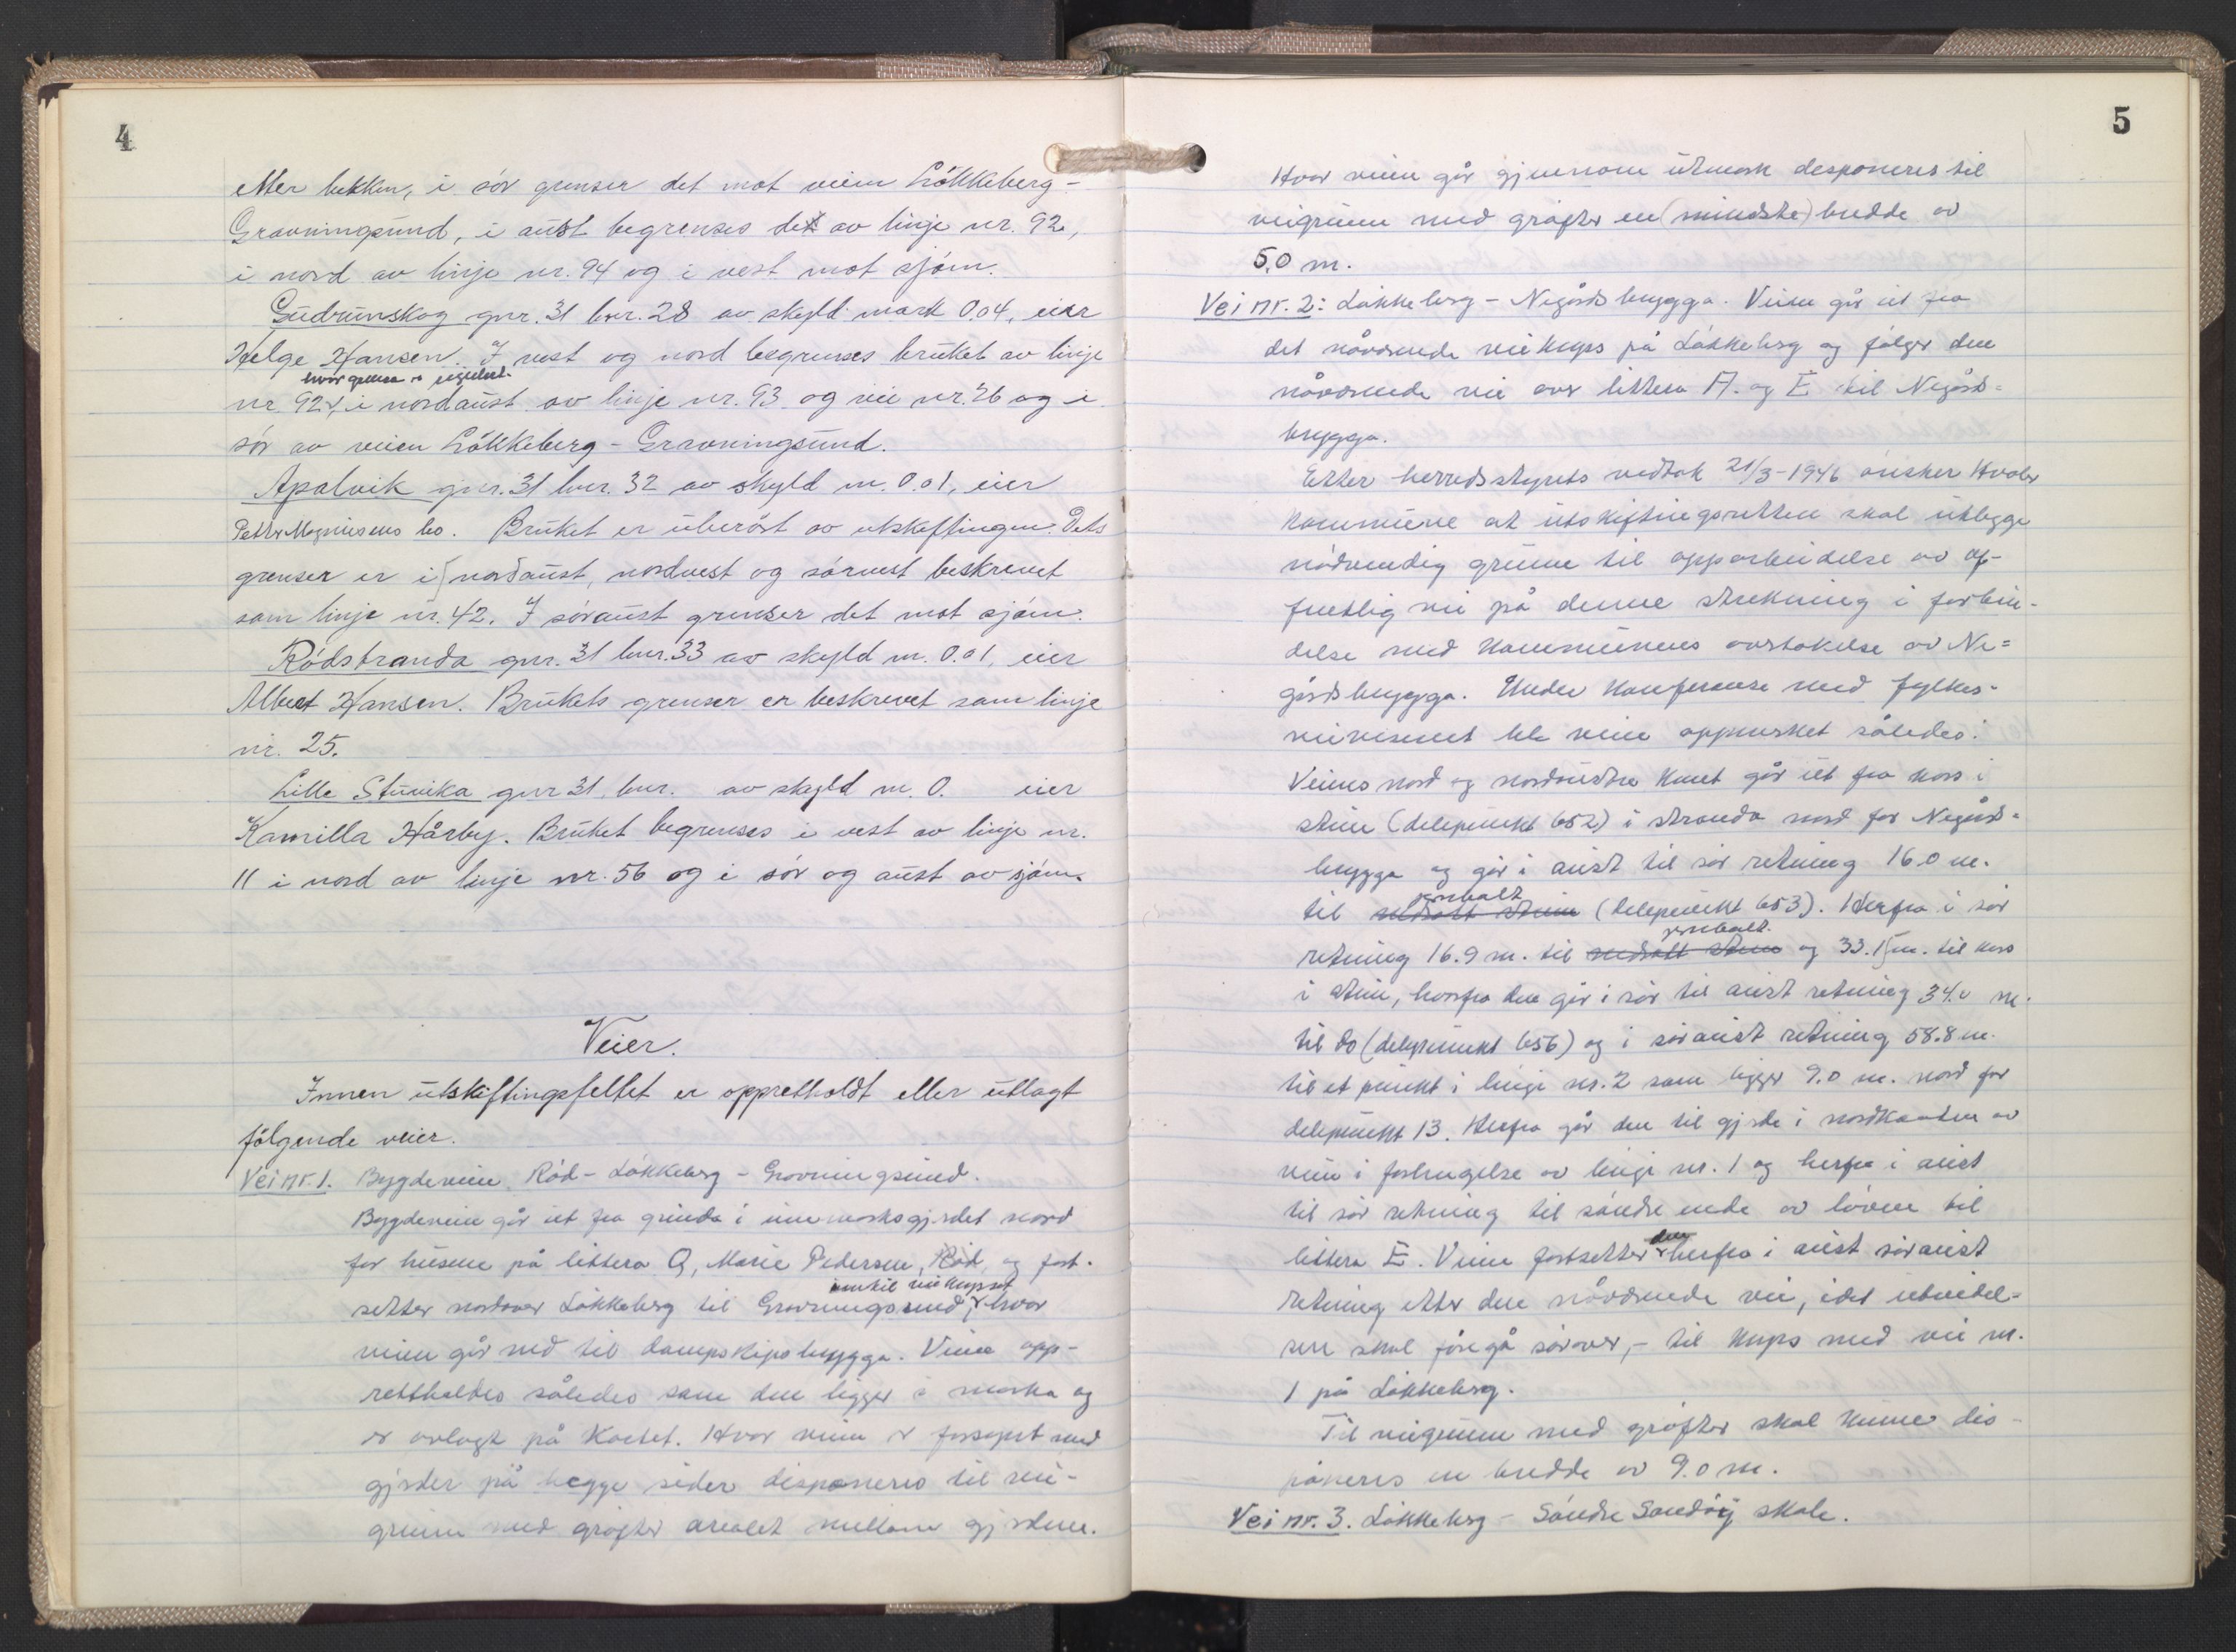 4
etter bekken, i sör grenser det mot veien Lökkeberg-
Gravningsund, i aust begrenses det av linje nr. 92,
i nord av linje nr. 94 og i vest mot sjöen.
Gudrunskog gnr. 31 bnr. 28 av skyld mark 0.04, eier
Helge Hansen. I vest og nord begrenses bruket av linje
hvor grensa er
nr. 92, i nordaust av linje nr. 93 og vei nr. 26 og i
sör av veien Lökkeberg - Gravningsund.
Apalvik gnr. 31 bnr. 32 av skyld m. 0.01, eier
Petter Magnusens bo. Bruket er uberört av utskiftingen. Dets
grenser er i nordaust, nordvest og sörvest beskrevet
som linje nr. 42. I söraust grenser det mot sjöen.
Rödstranda gnr. 31 bnr. 33 av skyld m. 0.01, eier
Albert Hansen. Brukets grenser er beskrevet som linje
nr. 25.
Lille Stuvika gnr 31, bnr. av skyld m. 0. eier
Kamilla Hårby. Bruket begrenses i vest av linje nr.
11 i nord av linje nr. 56 og i sör og aust av sjöen.
Veier.
Innen utskiftingsfeltet er oppretholdt eller utlagt
fölgende veier.
Vei nr. 1. Bygdeveien Röd - Lökkeberg - Gravningsund.
Bygdeveien går ut fra grinda i innmarksgjerdet nord
for husene på littera Q, Marie Pedersen, Röd, og fort-
inntil veikrysset
setter nordover Lökkeberg til Gravningsund, hvor
veien går ned til dampskipsbrygga. Veien opp-
rettholdes således som den ligger i marka og
er avlagt på kartet. Hvor veien er forsynt med
gjerder på begge sider disponeres til vei-
grunn med gröfter arealet mellom gjerdene.
5
Hvor veien går gjennom utmark desponeres til
veigrunn med gröfter en (mindste) bredde av
5.0 m.
Vei nr. 2: Lökkeberg - Negårdsbrygga. Veien går ut fra
det nåværende veikryss på Lökkeberg og fölger den
nåværende vei over littera A. og E til Negårds-
brygga.
Etter herredsstyrets vedtak 21/3-1946 önsker Hvaler
kommune at utskiftingsretten skal utlegge
nödvendig grunn til opparbeidelse av of-
fentlig vei på denne strekning i forbin-
delse med kommunenes overtakelse av Ne-
gårdsbrygga. Under konferanse med fylkes-
veivesenet ble veien oppmerket således:
Veiens nord og nordöstre kant går ut fra kors i
stein (delepunkt 652) i stranda nord for Negårds-
brygga og går i aust til sör retning 16.0 m.
jernbolt
til nedsatt stein (delepunkt 653). Herfra i sör
jernbolt.
retning 16.9 m. til nedsatt stein og 33.1 m. til kors
i stein, hvorfra den går i sör til aust retning 34.0 m.
til do (delepunkt 656) og i söraust retning 58.8 m.
til et punkt i linje nr. 2 som ligger 9.0 m. nord for
delepunkt 13. Herfra går den til gjerde i nordkanten av
veien i forlengelse av linje nr. 1 og herfra i aust
til sör retning til söndre ende av låven til
den
littera E. Veien fortsetter herfra i aust söraust
retning etter den nåværende vei, idet utvidel-
sen skal foregå sörover, - til kryss med vei nr.
1 på Lökkeberg.
Til veigrunn med gröfter skal kunne dis-
poneres en bredde av 9.0 m.
Vei nr. 3. Lökkeberg - Söndre Sandöy skole.